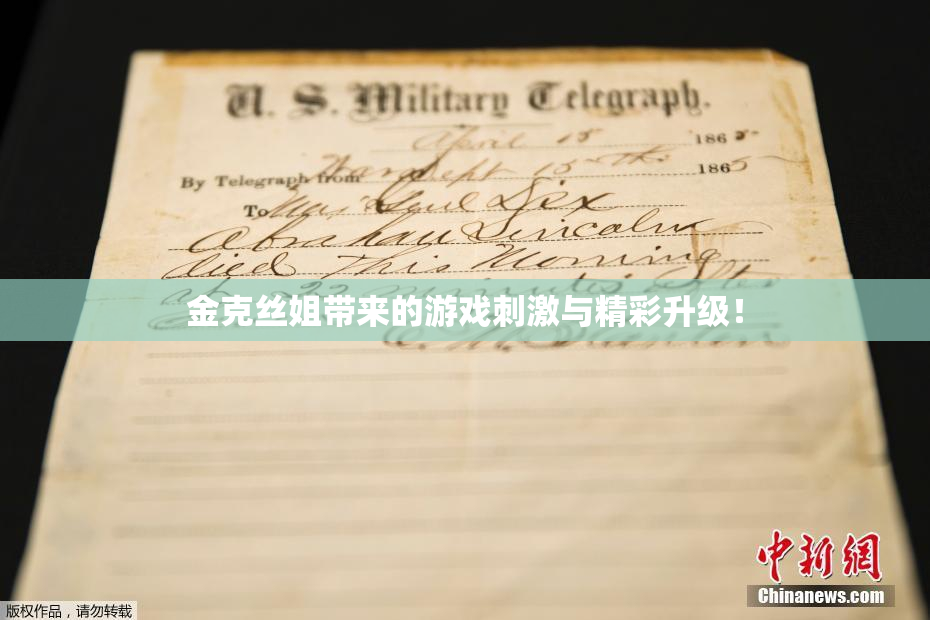 U. S. Military Telegraph.
April 15 1865
By Telegraph from War Dept 15th 1865
To Maj Genl Dix
Abraham Lincoln
died This Morning
at 22 minutes after
金克丝姐带来的游戏刺激与精彩升级！
E. M. Stanton
中新网
Chinanews.com
版权作品，请勿转载